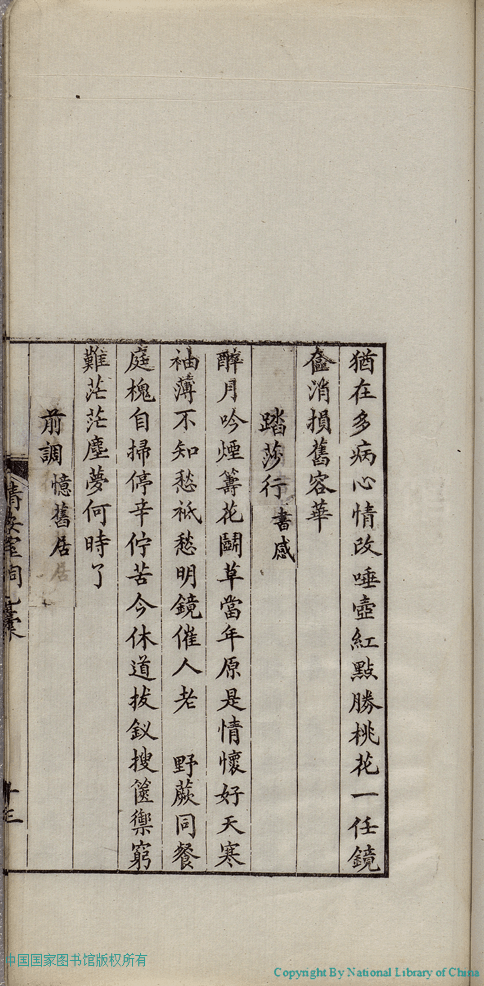 猶在多病心情改唾壺紅點勝桃花一任鏡
奩消損舊容華
踏莎行 書感
醉月吟煙籌花鬭草當年原是情懷好天寒
袖薄不知愁祗愁明鏡催人老 野蕨同餐
庭槐自掃停辛佇苦今休道拔釵搜篋禦窮
難茫茫塵夢何時了
前調 憶舊居
中国国家图书馆版权所有
Copyright By National Library of China